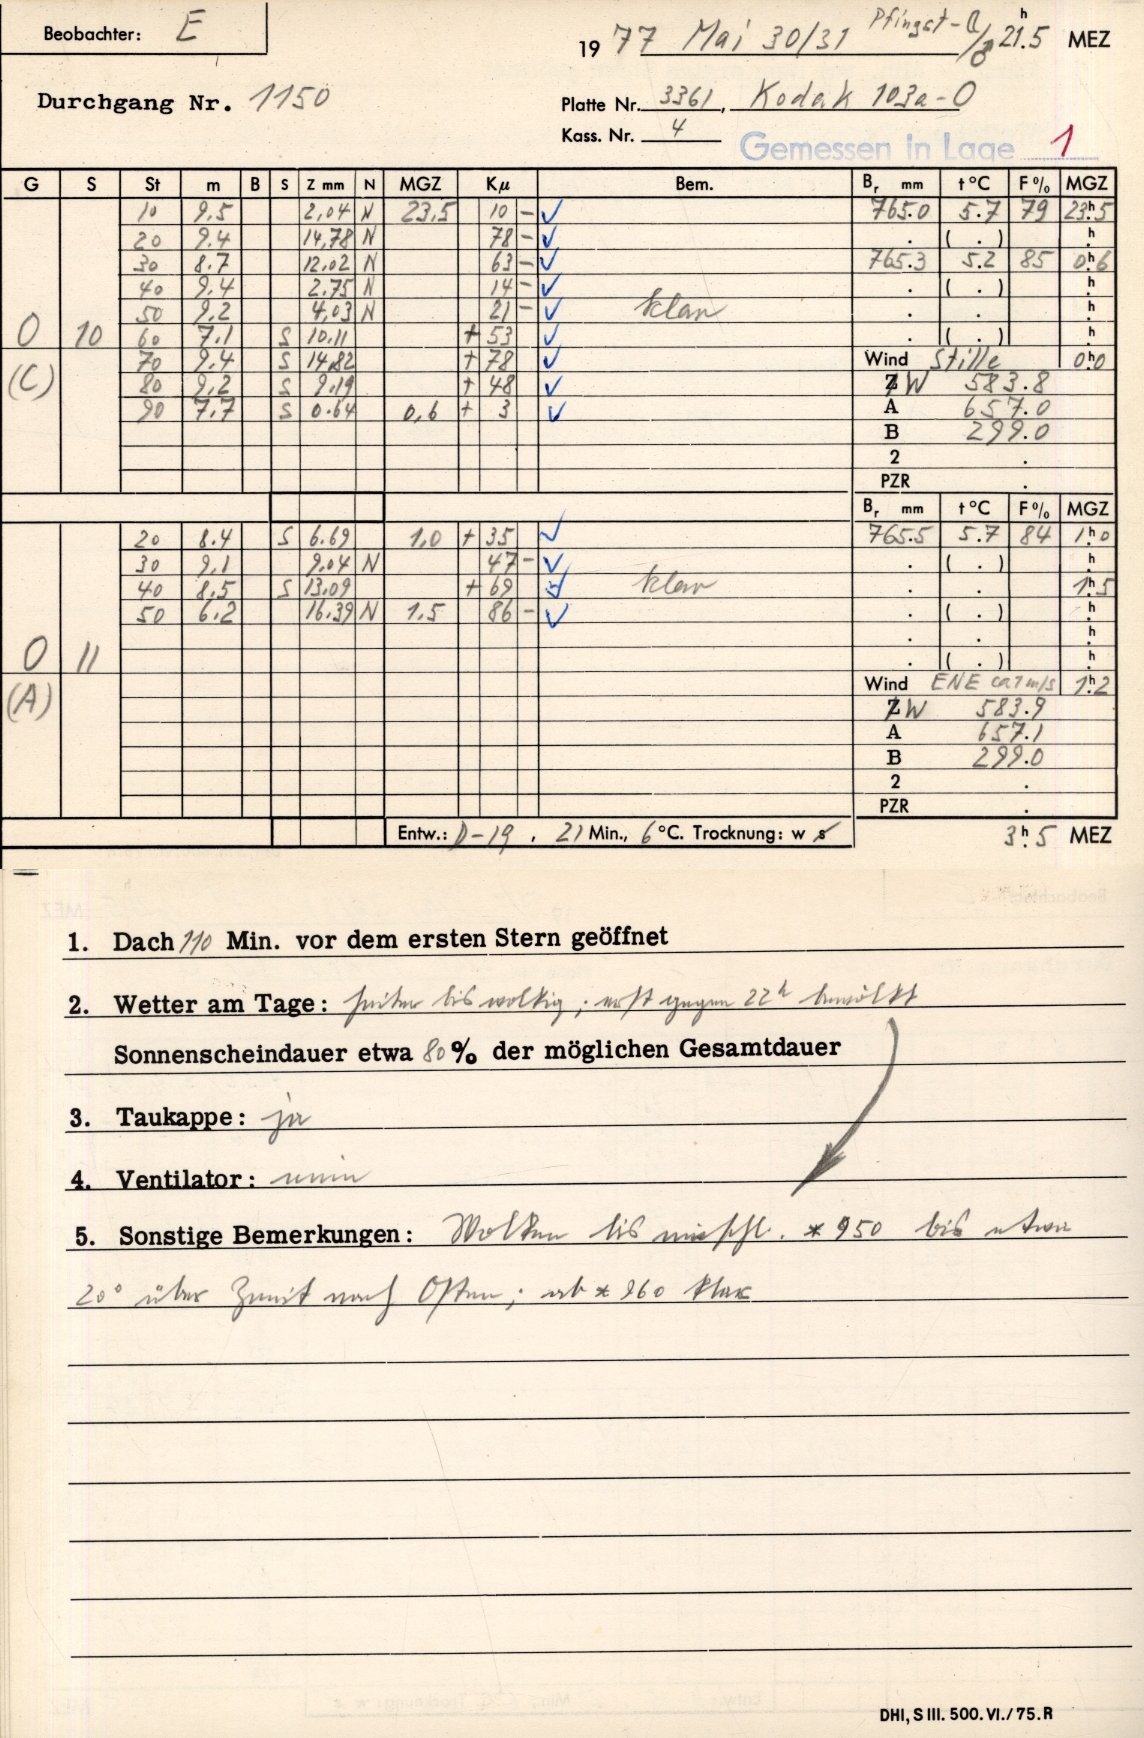 Beobachter: E
1977 Mai 30/31 Pfingst- 21h.5 MEZ
Durchgang Nr. 1150
Platte Nr. 3361, Kodak 103a-O
Kass. Nr. 4
Gemessen in Lage 1
G S St m B S Z mm N MGZ Kµ Bem. Br mm t°C F% MGZ
10 9.5 2,04 N 23,5 10 – ✓ 765.0 5.7 79 23h.5
20 9.4 14,78 N 78 – ✓ . ( . ) h.
30 8.7 12.02 N 63 – ✓ 765.3 5.2 85 0h.6
40 9.4 2.75 N 14 – ✓ . ( . ) h.
50 9.2 4,03 N 21 – ✓ klar . . h.
0 10 60 7.1 S 10.11 + 53 ✓ . ( . ) h.
(C) 70 9.4 S 14,82 + 78 ✓ Wind Stille 0h.0
80 9.2 S 9.19 + 48 ✓ Z W 583.8
90 7.7 S 0.64 0,6 + 3 ✓ A 657.0
B 299.0
2 .
PZR .
Br mm t°C F% MGZ
20 8.4 S 6.69 1,0 + 35 ✓ 765.5 5.7 84 1h.0
30 9.1 9,04 N 47 – ✓ . ( . ) h.
40 8.5 S 13.09 + 69 ✓ klar . . 1h.5
50 6.2 16.39 N 1.5 86 – ✓ . ( . ) h.
. . h.
0 11 . ( . ) h.
(A) Wind ENE ca 1 m/s 1h.2
Z W 583.9
A 657.1
B 299.0
2 .
PZR .
Entw.: D-19, 21 Min., 6°C. Trocknung: w s 3h.5 MEZ
1. Dach 110 Min. vor dem ersten Stern geöffnet
2. Wetter am Tage: heiter bis wolkig; erst gegen 22h bewölkt
Sonnenscheindauer etwa 80% der möglichen Gesamtdauer
3. Taukappe: ja
4. Ventilator: nein
5. Sonstige Bemerkungen: Wolken bis * 950 bis etwa
20° über Zenit nach Osten; ab * 960 klar
DHI, S III. 500. VI./75. R